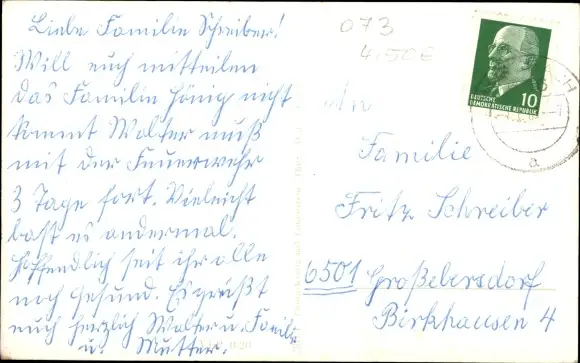 Liebe Familie Schreiber!
Will euch mitteilen
das Familie König nicht
kommt Walter muß
mit der Feuerwehr
3 Tage fort. Vieleicht
bast es andermal.
Hoffendlich seit ihr alle
noch gesund. Es grüßt
euch herzlich Walter u. Familie
u. Mutter.
073
4,50€
DEUTSCHE
DEMOKRATISCHE REPUBLIK
10
a
An
Familie
Fritz Schreiber
6501 Großebersdorf
Birkhausen 4